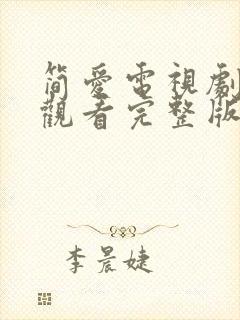 简愛電視劇
觀看完整版
李晨婕